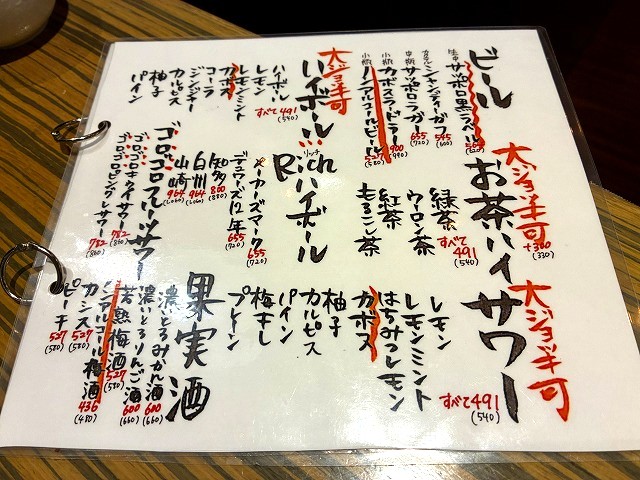 ビール
生中 サッポロ黒ラベル
カクテル シャンディーガフ 545 (600)
中瓶 サッポロラガー 655 (720)
小瓶 カボスラードラー 900 (990)
小瓶 ノンアルコールビール 527 (580)
大ジョッキ可
ハイボール
ハイボール
レモン
レモンミント
カボス
コーラ
ジンジャー
カルピス
柚子
パイン
すべて491
(540)
大ジョッキ可
+300
(330)
お茶ハイ
緑茶
ウーロン茶
紅茶
もろこし茶
すべて
491
(540)
リッチ
Richハイボール
メーカーズマーク 655 (720)
デュワーズ12年 655 (720)
知多 800 (880)
白州 964
山崎 964
ゴロゴロフルーツサワー
ゴロゴロキウイサワー 782 (860)
ゴロゴロピングレサワー 782 (860)
大ジョッキ可
サワー
レモン
レモンミント
はちみつレモン
カボス
柚子
カルピス
パイン
梅干し
プレーン
すべて491
(540)
果実酒
濃いとろみかん酒 600 (660)
濃いとろりんご酒 600 (660)
若熟梅酒 527 (580)
ノンアルコール梅酒 436 (480)
カシス 527 (580)
ピーチ 527 (580)